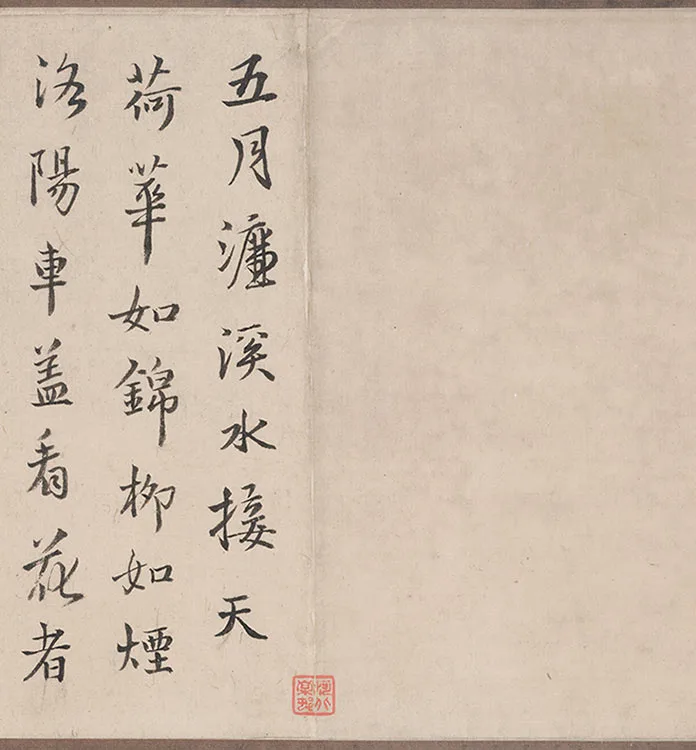 五月濂溪水接天
荷華如錦柳如煙
洛陽車盖看花者